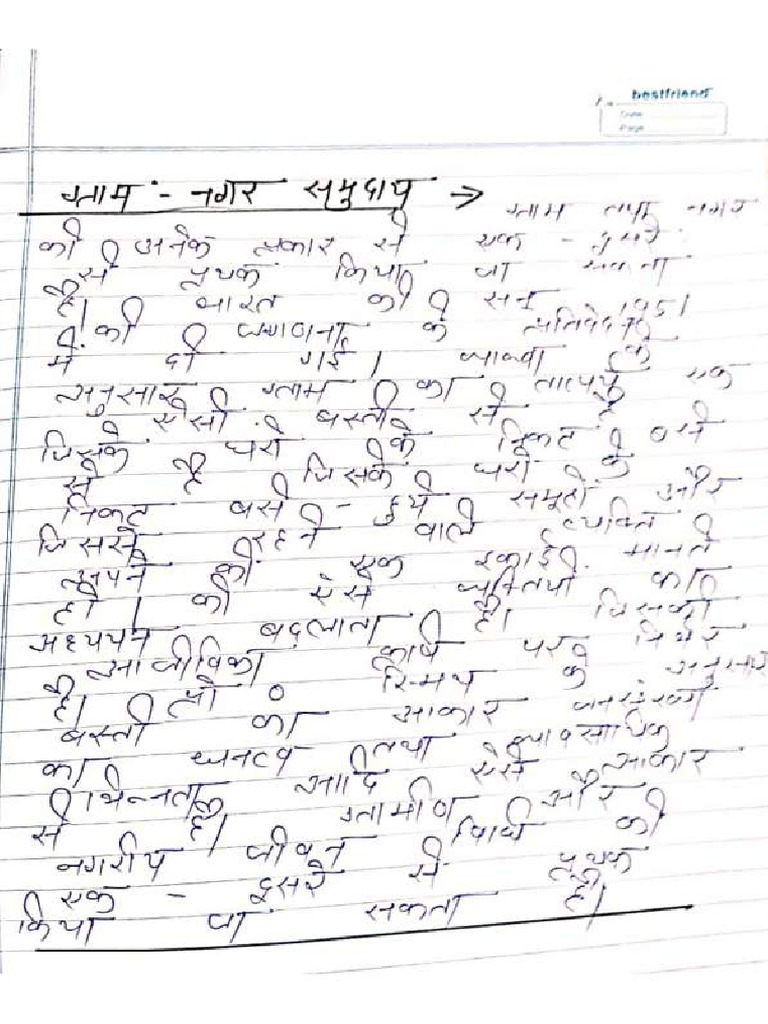 bestfriend
Date
Page
ग्राम :- नगर समुदाय → ग्राम तथा नगर
को अनेक प्रकार से एक - दुसरे
से पृथक किया जा सकता
है। भारत की सन् 1951
की जनगणना के प्रतिवेदन
में दी गई। व्याख्या के
अनुसार ग्राम का तात्पर्य एक
ऐसी बस्ती से है
जिसके घरो के निकट बसे
से है जिसके घरो के
निकट बसे - हुये समूहो और
जिसमे रहने वाले व्यक्ति
अपने को एक इकाई मानते
हो। को ऐसे व्यक्तियों का
अध्ययन बदलाता है। जिसकी
आजीविका कृषि पर निर्भर
है। के अनुसार
बस्ती का आकार जनसंख्या
का घनत्व तथा व्यावसायिक
भिन्नता आदि ऐसे आकार
से है। ग्रामीण और
नगरीय जीवन विधि को
एक - दुसरे से पृथक
किया जा सकता है।